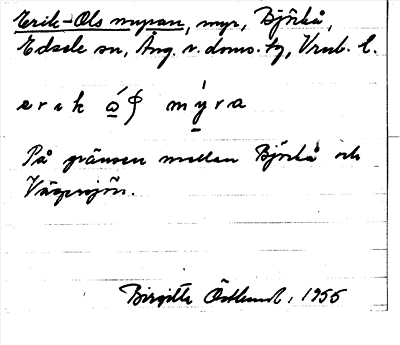 Erik-Ols myran, myr, Björkå,
Edsele sn, Ång. v. doms. tg, Vrnb. l.
erik ó̲ʃ mýra
På gränsen mellan Björkå och
Vägersjön.
Birgitta Östlund, 1955